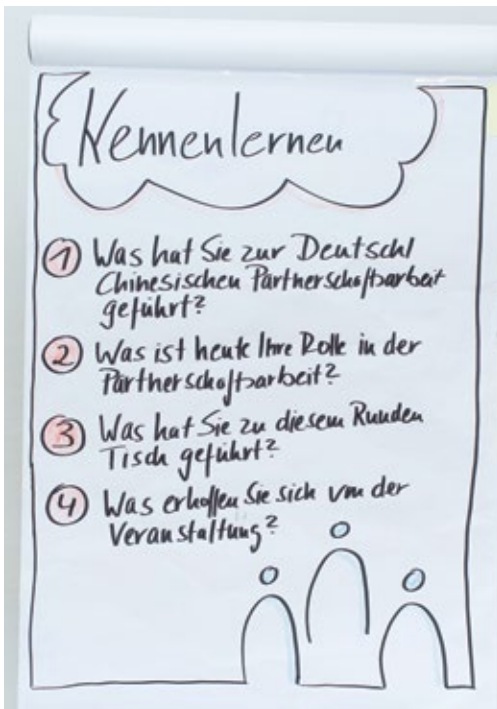 Kennenlernen
1 Was hat Sie zur Deutschl
Chinesischen Partnerschaftsarbeit
geführt?
2 Was ist heute Ihre Rolle in der
Partnerschaftsarbeit?
3 Was hat Sie zu diesem Runden
Tisch geführt?
4 Was erhoffen Sie sich von der
Veranstaltung?